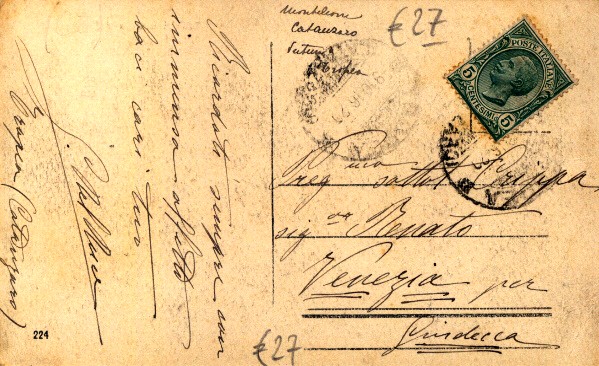 Monteleone
Catanzaro
Tropea
€27
POSTE ITALIANE
CENTESIMI
5
5
Ricordate sempre con
immenso affetto
baci cari tuo
Tropea (Catanzaro)
Preg.mo sottot. Trippa
sig.or Renato
Venezia per
Giudecca
224
€27